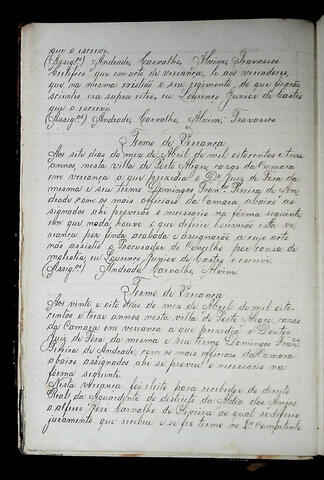 que o escrevi
(Assig.os) Andrade, Carvalho, Alvim, Travassos
Certifico que em acto de vereança, li aos vereadores,
que na mesma existião o seu regimento, do que ficarão
scientes era supra retro, eu Lourenço Junior de Castro
que o escrevi
(Assig.os) Andrade, Carvalho, Alvim, Travassos
Termo de Vereança
Aos sete dias do mez de Abril de mil oitocentos e treze
annos, nesta villa de Porto Alegre, cazas da Camara
em vereança a que presidio o Dr. Juiz de Fora da
mesma e seu termo Domingos Fran.co Pereira de An-
drade com os mais officiaes da Camara abaixo as-
signados ahi proverão o necessario na forma seguinte
Em que nada houve o que deferir houverão esta ve-
reança por finda acabada e designação, a cujo acto
não assistio o Procurador do Concelho por causa de
molestia, eu Lourenço Junior de Castro o escrevi
(Assig.os) Andrade, Carvalho, Alvim
Termo de Vereança
Aos vinte e oito dias do mez de Abril de mil oito-
centos e treze annos nesta villa de Porto Alegre, cazas
da Camara em vereança a que presidio o Doutor
Juiz de Fora da mesma e seu termo Domingos Fran.co
Pereira de Andrade, com os mais officiaes da Camara
abaixo assignados ahi se proveu o necessario na
forma seguinte
Nesta vereança foi eleito para recebedor do direito
Real, da Aguardente do districto da Aldia dos Anjos
o alferes José Carvalho de ao qual se deferio
juramento que recebeu e se fez termo no L.o Competente